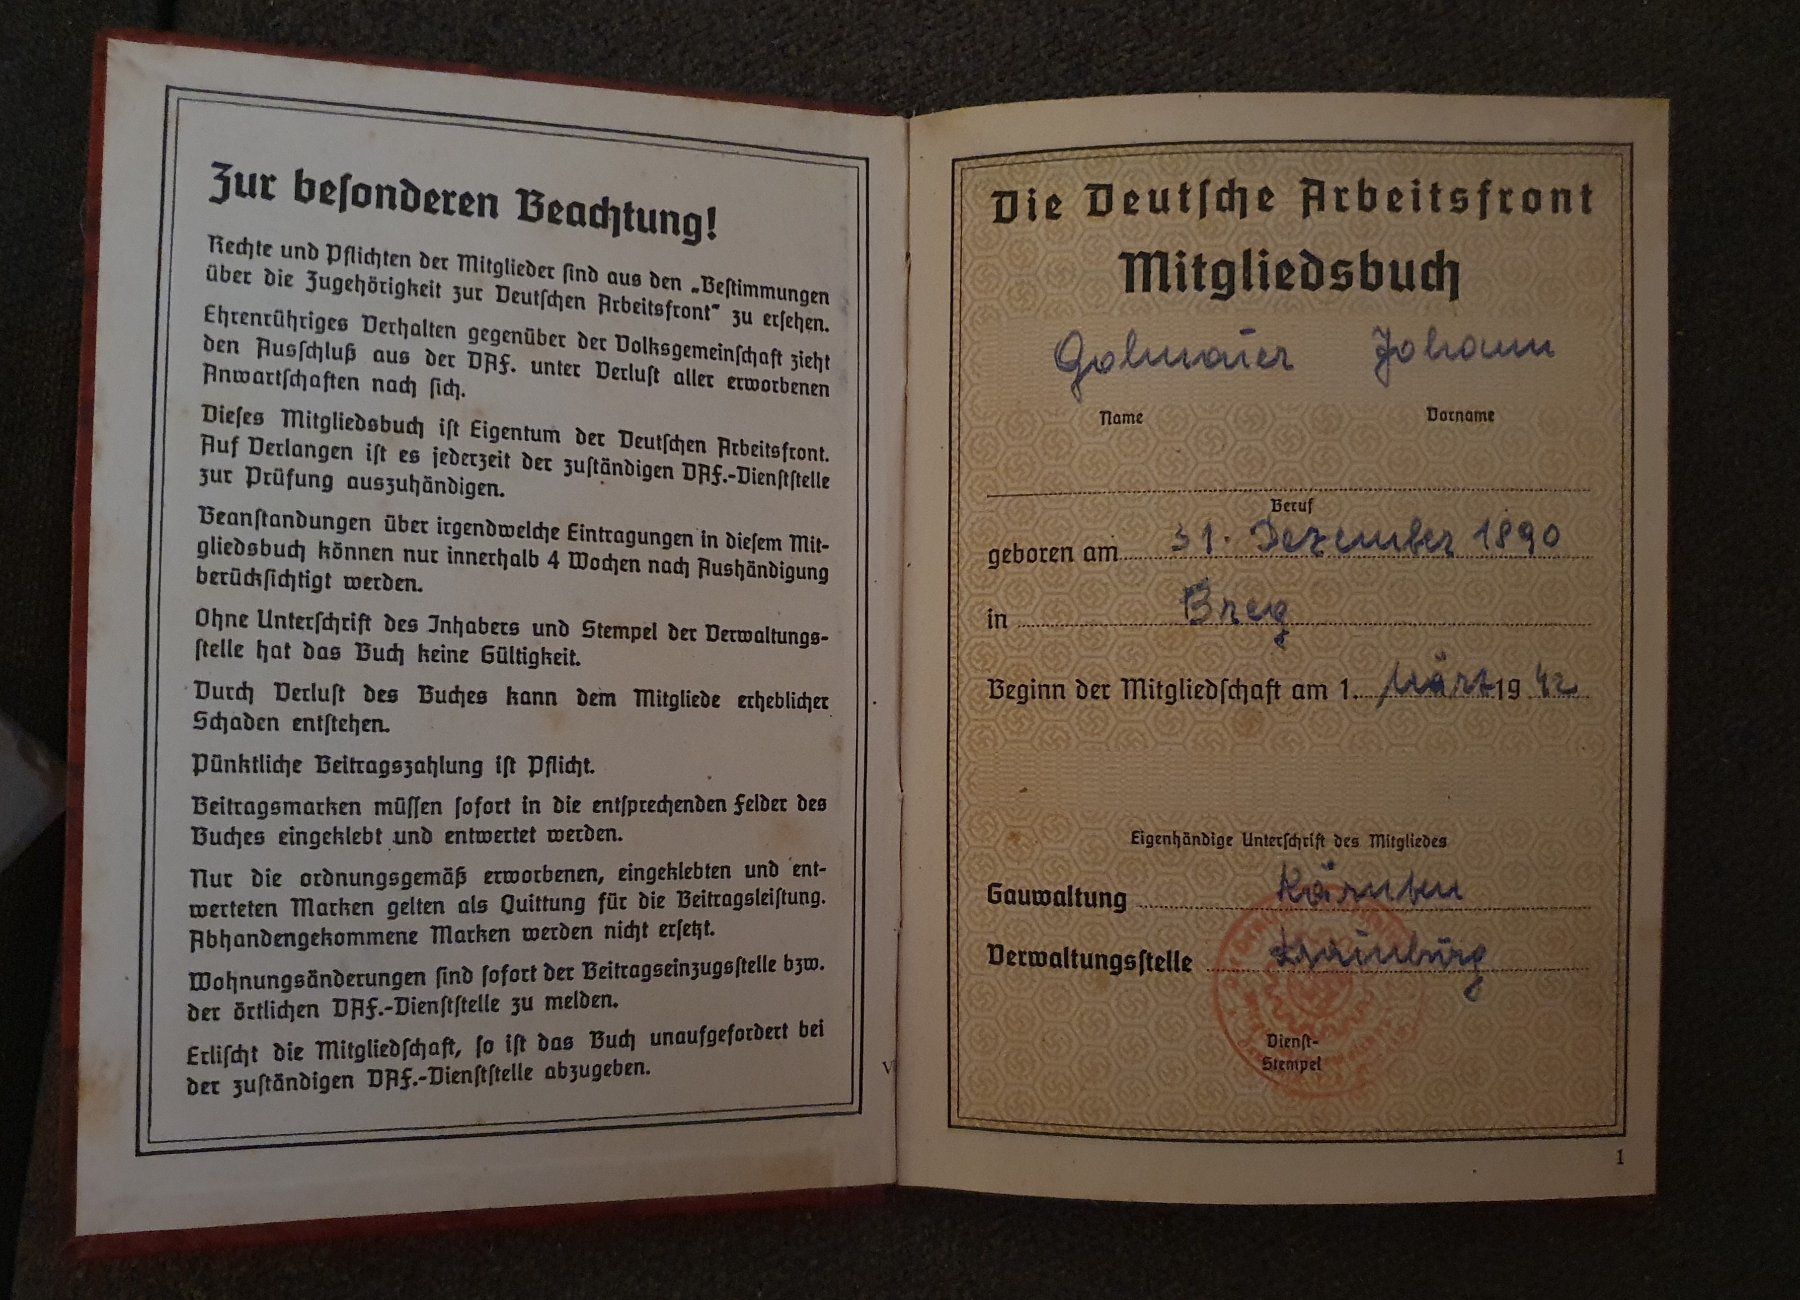 Zur besonderen Beachtung!
Rechte und Pflichten der Mitglieder sind aus den „Bestimmungen
über die Zugehörigkeit zur Deutschen Arbeitsfront" zu ersehen.
Ehrenrühriges Verhalten gegenüber der Volksgemeinschaft zieht
den Ausschluß aus der DAF. unter Verlust aller erworbenen
Anwartschaften nach sich.
Dieses Mitgliedsbuch ist Eigentum der Deutschen Arbeitsfront.
Auf Verlangen ist es jederzeit der zuständigen DAF.-Dienststelle
zur Prüfung auszuhändigen.
Beanstandungen über irgendwelche Eintragungen in diesem Mit-
gliedsbuch können nur innerhalb 4 Wochen nach Aushändigung
berücksichtigt werden.
Ohne Unterschrift des Inhabers und Stempel der Verwaltungs-
stelle hat das Buch keine Gültigkeit.
Durch Verlust des Buches kann dem Mitgliede erheblicher
Schaden entstehen.
Pünktliche Beitragszahlung ist Pflicht.
Beitragsmarken müssen sofort in die entsprechenden Felder des
Buches eingeklebt und entwertet werden.
Nur die ordnungsgemäß erworbenen, eingeklebten und ent-
werteten Marken gelten als Quittung für die Beitragsleistung.
Abhandengekommene Marken werden nicht ersetzt.
Wohnungsänderungen sind sofort der Beitragseinzugsstelle bzw.
der örtlichen DAF.-Dienststelle zu melden.
Erlischt die Mitgliedschaft, so ist das Buch unaufgefordert bei
der zuständigen DAF.-Dienststelle abzugeben.
V
Die Deutsche Arbeitsfront
Mitgliedsbuch
Johann
Name Vorname
Beruf
geboren am 31. Dezember 1890
in Breg
Beginn der Mitgliedschaft am 1. März 1942
Eigenhändige Unterschrift des Mitgliedes
Gauwaltung Kärnten
Verwaltungsstelle Krainburg
Dienst-
Stempel
1